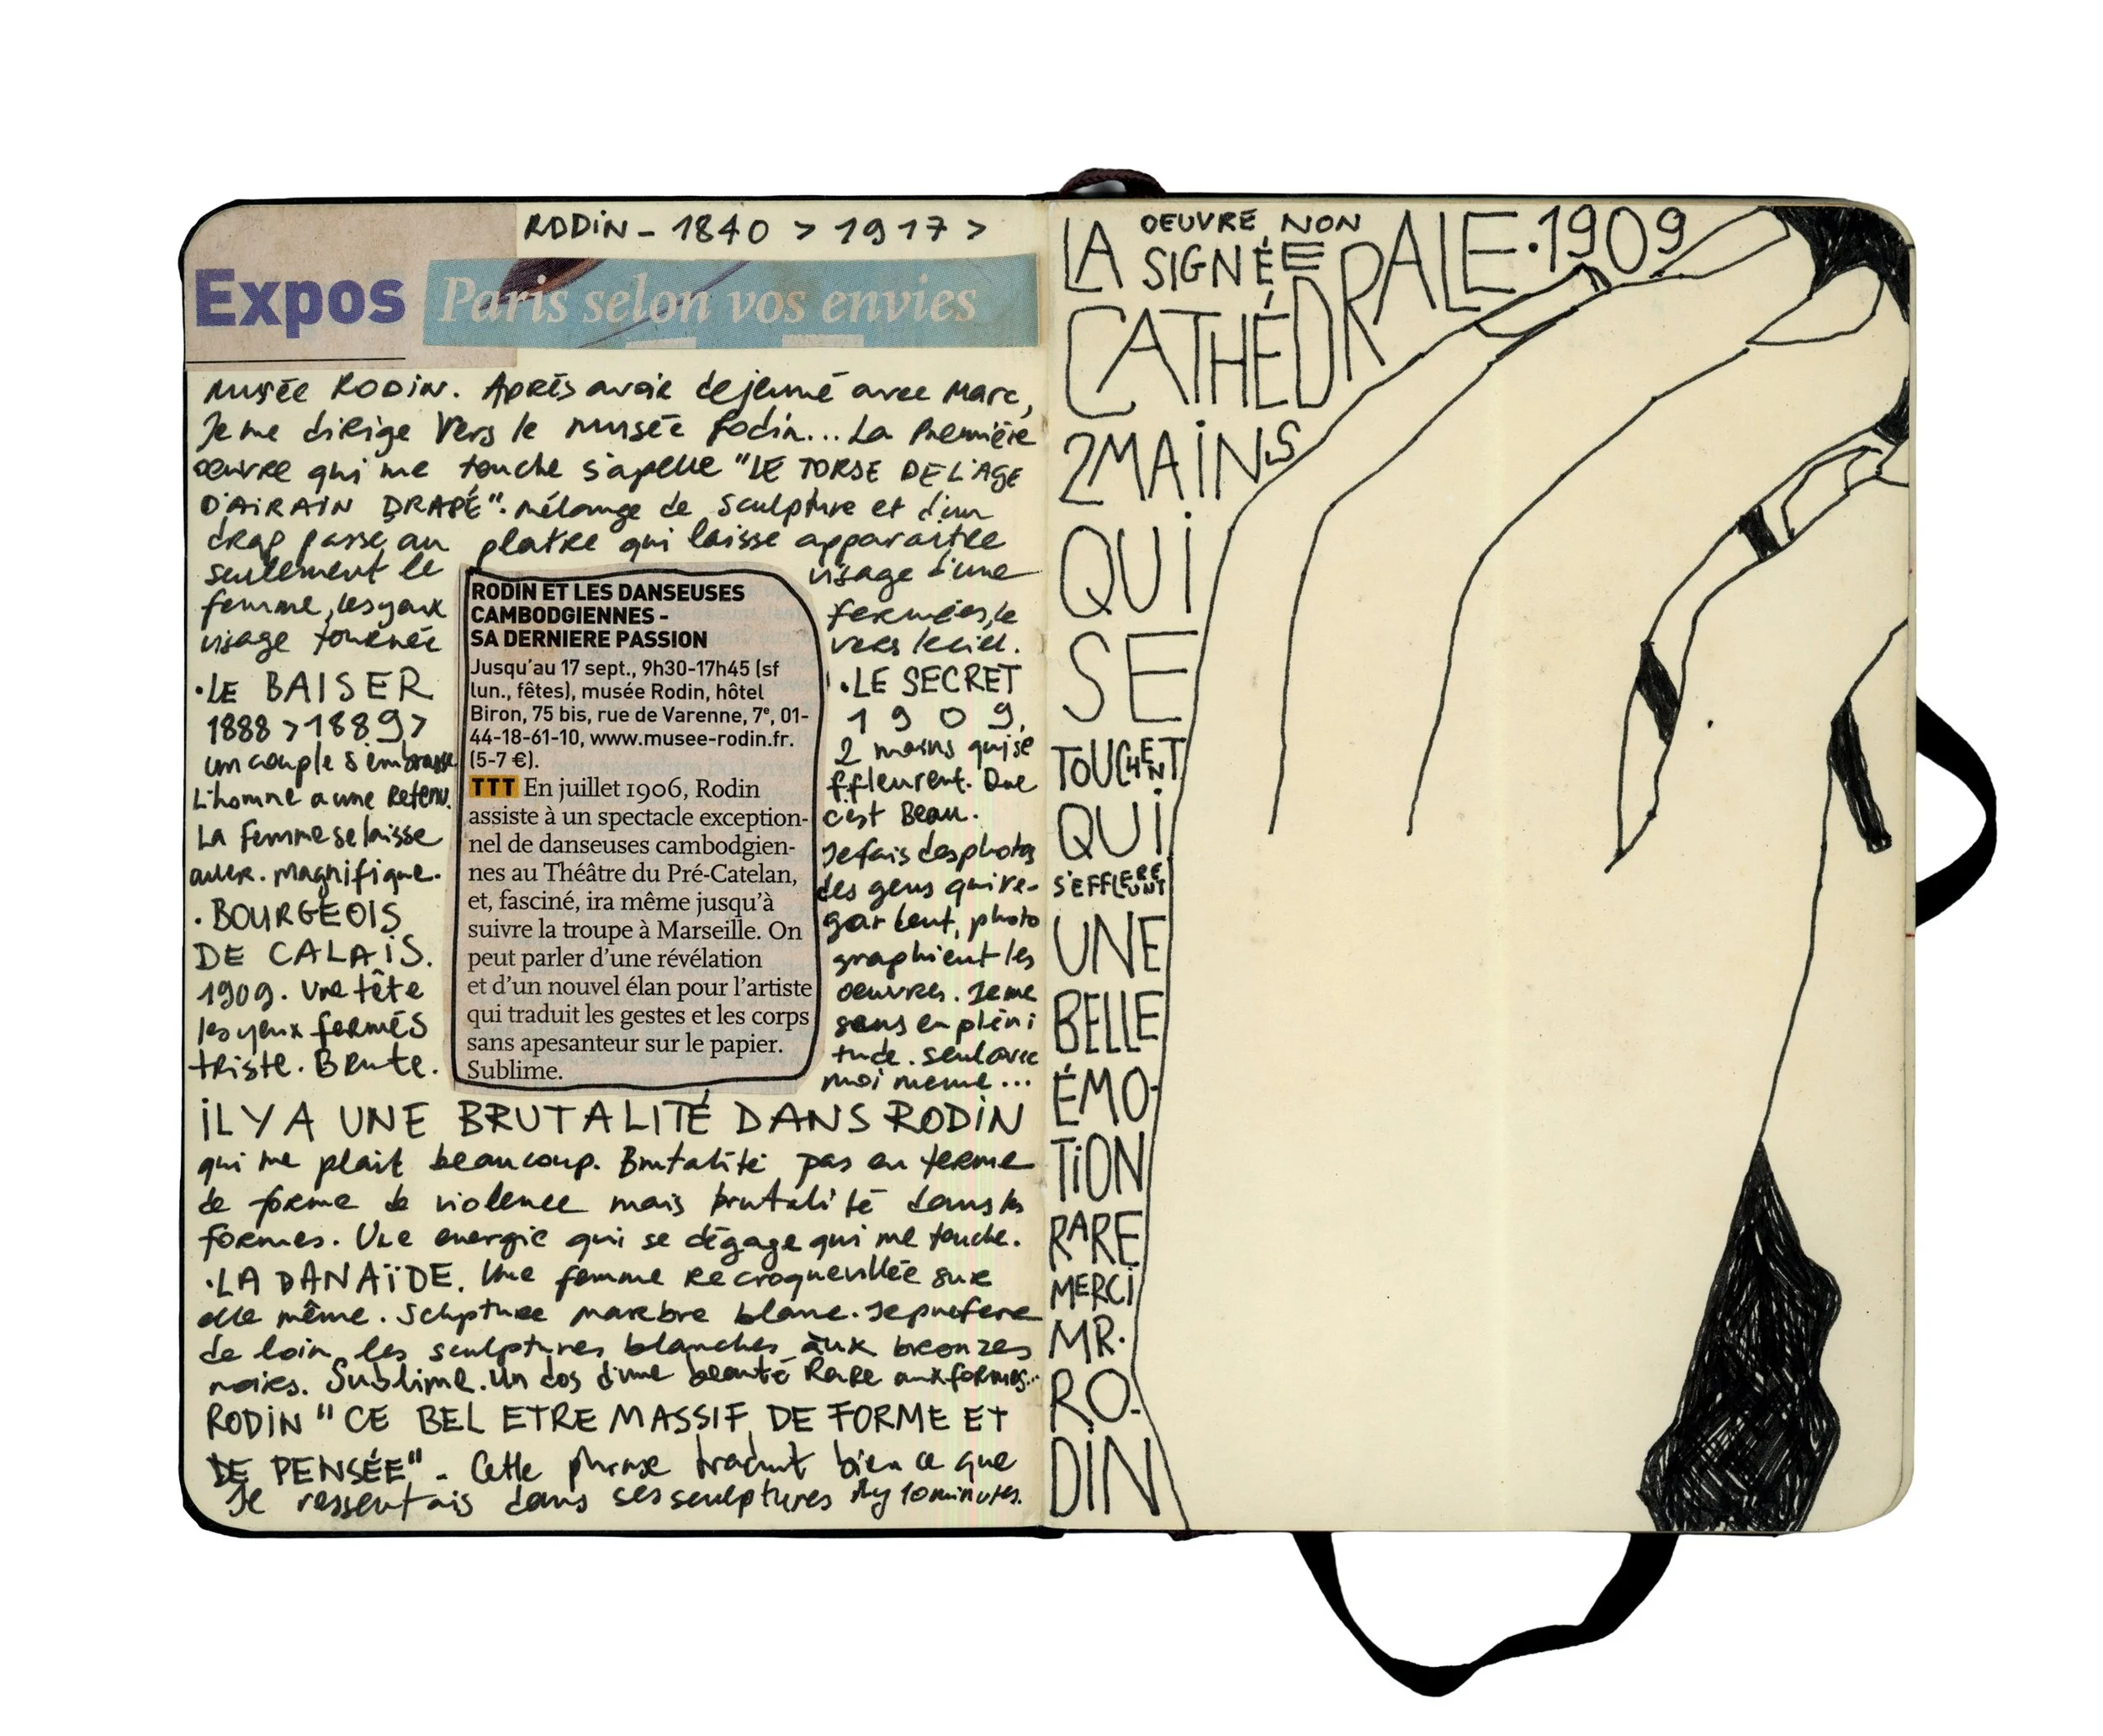 RODiN - 1840 > 1917 >
Expos
Paris selon vos envies
musée RODiN. Après avoir dejeuné avec Marc,
Je me dirige Vers le musée Rodin... La Première
oeuvre qui me touche s'apelle "LE TORSE DE L'AGE
D'AiRAiN DRAPÉ". mélange de sculpture et d'un
drap passe au platre qui laisse apparaitre
seulement le visage d'une
femme, les yeux fermées, le
visage tournée vers le ciel.
•LE BAiSER
1888 > 1889 >
un couple s'embrasse
L'homme a une Retenu.
La femme se laisse
aller. Magnifique.
• BOURGEOiS
DE CALAiS.
1909. Une tête
les yeux fermés
triste. Brute.
RODIN ET LES DANSEUSES
CAMBODGIENNES -
SA DERNIERE PASSION
Jusqu'au 17 sept., 9h30-17h45 (sf
lun., fêtes), musée Rodin, hôtel
Biron, 75 bis, rue de Varenne, 7e, 01-
44-18-61-10, www.musee-rodin.fr.
(5-7 €).
TTT En juillet 1906, Rodin
assiste à un spectacle exception-
nel de danseuses cambodgien-
nes au Théâtre du Pré-Catelan,
et, fasciné, ira même jusqu'à
suivre la troupe à Marseille. On
peut parler d'une révélation
et d'un nouvel élan pour l'artiste
qui traduit les gestes et les corps
sans apesanteur sur le papier.
Sublime.
•LE SECRET
1909.
2 mains qui se
ffleurent. Que
c'est Beau.
Je fais des photos
des gens qui re-
gardent, photo
graphient les
oeuvres. Je me
sens en pléni
tude. seul avec
moi meme...
iL Y A UNE BRUTALiTÉ DANS RODiN
qui me plait beaucoup. Brutalité pas en terme
de forme de violence mais brutalité dans les
formes. Une energie qui se dégage qui me touche.
•LA DANAÏDE. Une femme recroquevillée sur
elle même. Sclpture marbre blanc. Je prefere
de loin les sculptures blanches aux bronzes
noires. Sublime. Un dos d'une beauté Rare aux formes...
RODiN "CE BEL ETRE MASSiF DE FORME ET
DE PENSÉE". Cette phrase traduit bien ce que
Je ressentais dans ses sculptures il y 10 minutes.
OEUVRE NON
SiGNÉE
LA
CATHÉDRALE • 1909
2 MAiNS
QUi
SE
TOUCHENT
QUi
S'EFFLEURENT
UNE
BELLE
ÉMO-
TiON
RARE
MERCi
MR.
RO-
DiN